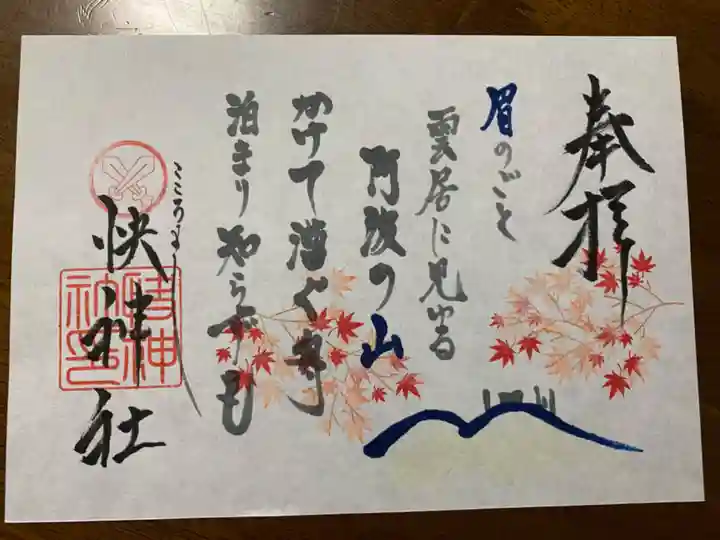 奉拝
眉のごと
雲居に見ゆる
阿波の山
かけて漕ぐ舟
泊まり知らずも
こころよし
快神社